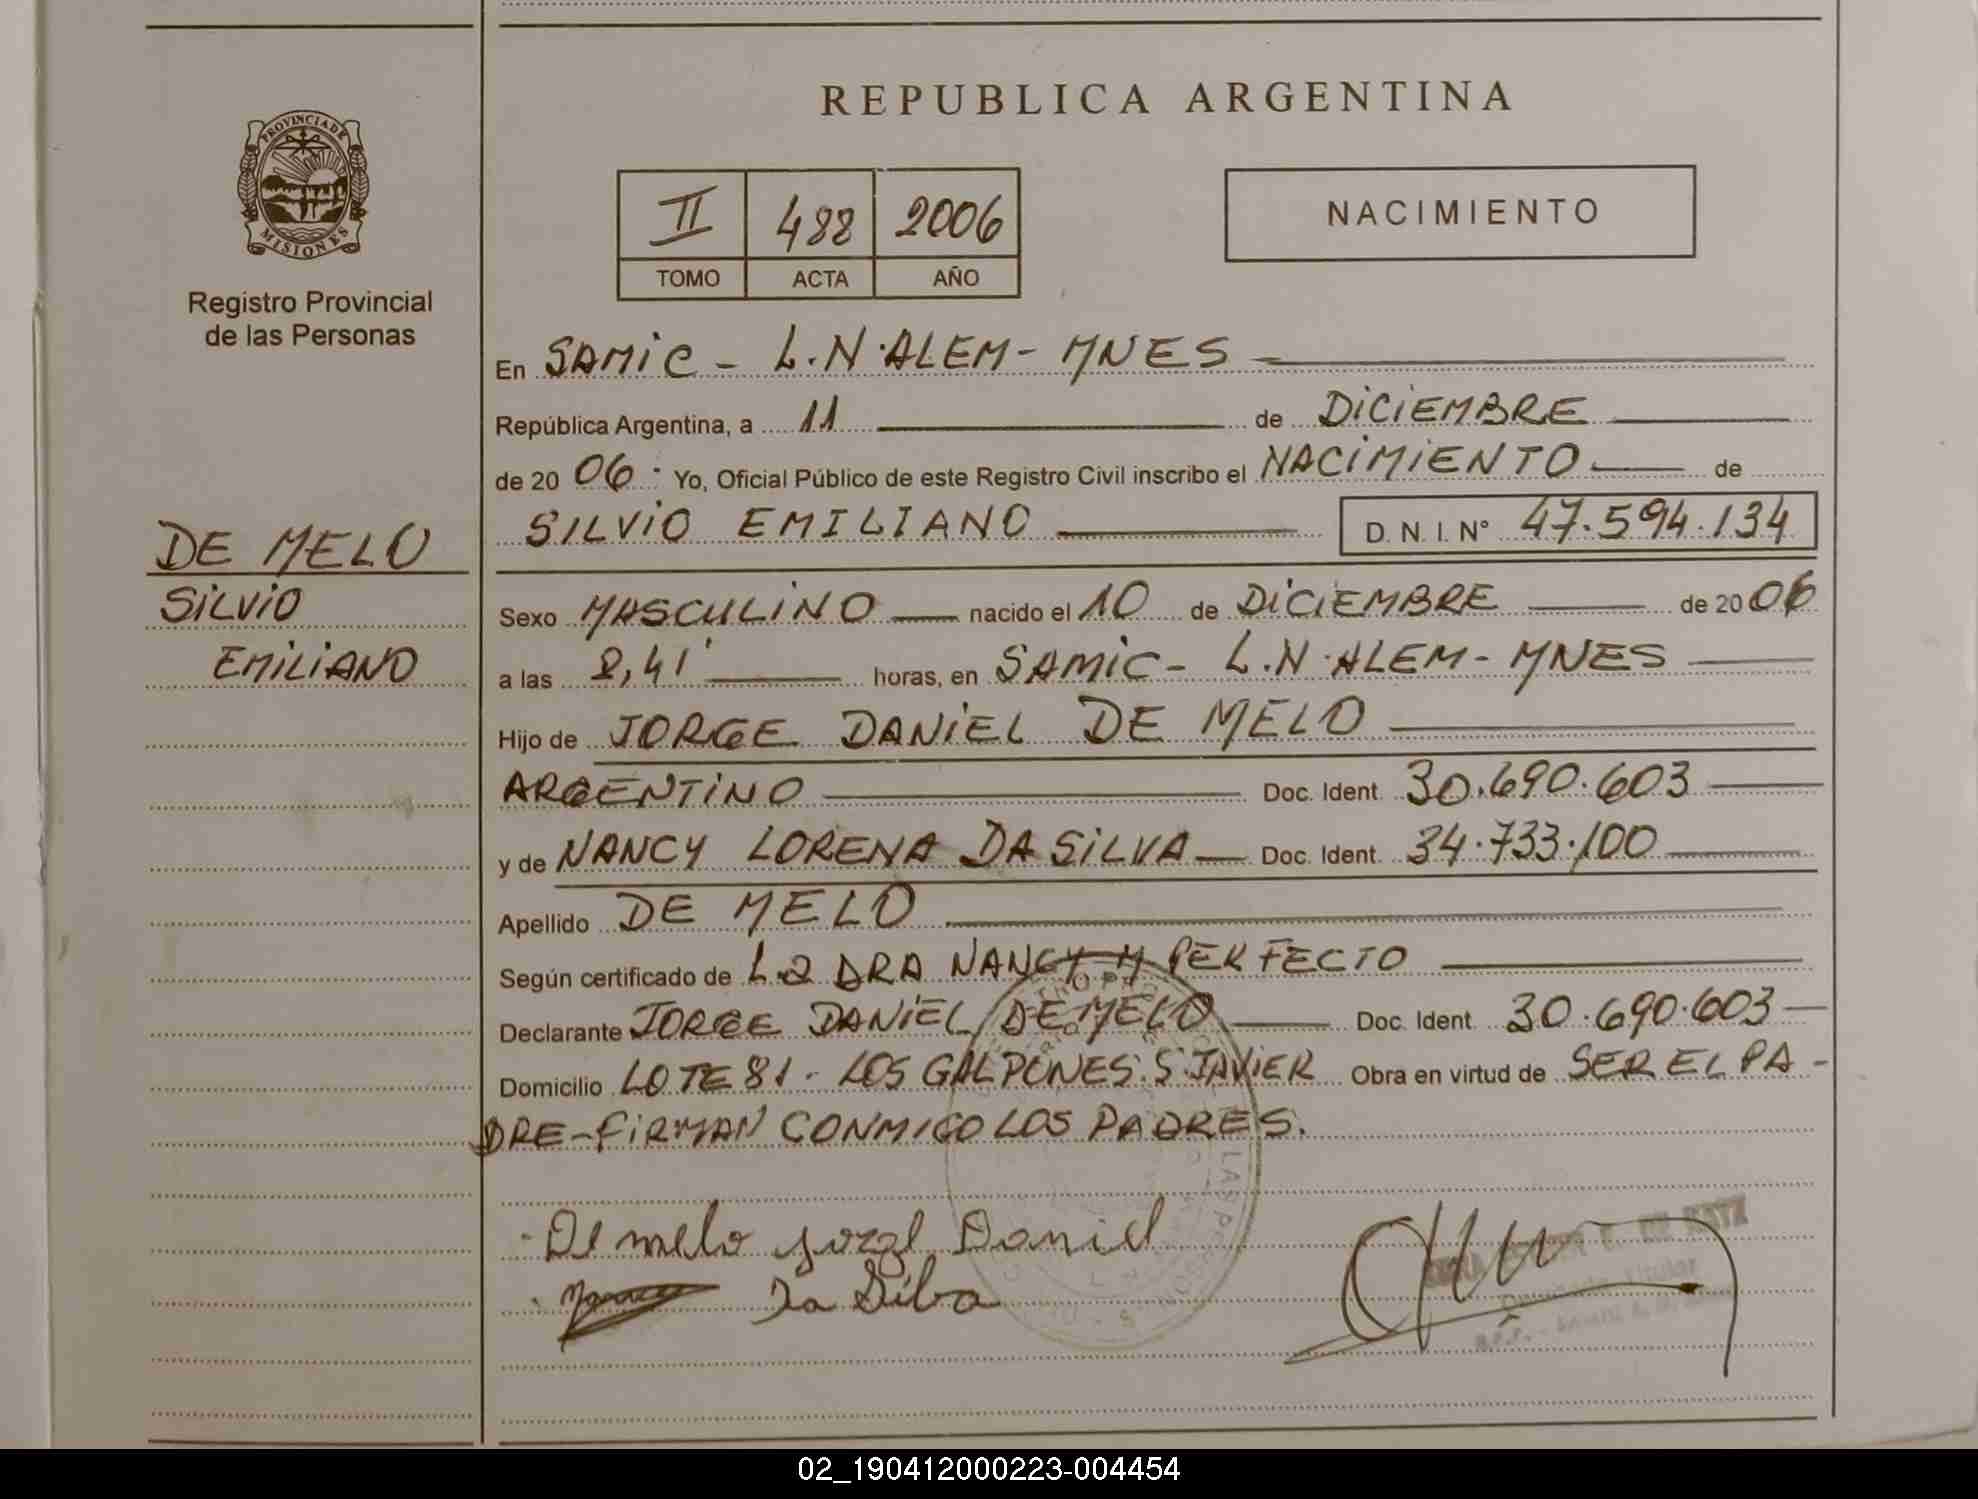 REPUBLICA ARGENTINA
PROVINCIA DE
MISIONES
Registro Provincial
de las Personas
II 488 2006
TOMO ACTA AÑO
NACIMIENTO
En SAMIC - L.N.ALEM - MNES
República Argentina, a 11 de DICIEMBRE
de 20 06. Yo, Oficial Público de este Registro Civil inscribo el NACIMIENTO de
SILVIO EMILIANO D. N. I. N° 47.594.134
DE MELO
SILVIO
EMILIANO
Sexo MASCULINO nacido el 10 de DICIEMBRE de 20 06
a las 8,41' horas, en SAMIC - L.N.ALEM - MNES
Hijo de JORGE DANIEL DE MELO
ARGENTINO Doc. Ident. 30.690.603
y de NANCY LORENA DA SILVA Doc. Ident. 34.733.100
Apellido DE MELO
Según certificado de L.2 DRA NANCY M PERFECTO
Declarante JORGE DANIEL DE MELO Doc. Ident. 30.690.603
Domicilio LOTE 81 - LOS GALPONES. S. JAVIER Obra en virtud de SER EL PA-
DRE - FIRMAN CONMIGO LOS PADRES.
De melo jorgl Daniel
Da Silva
02_190412000223-004454